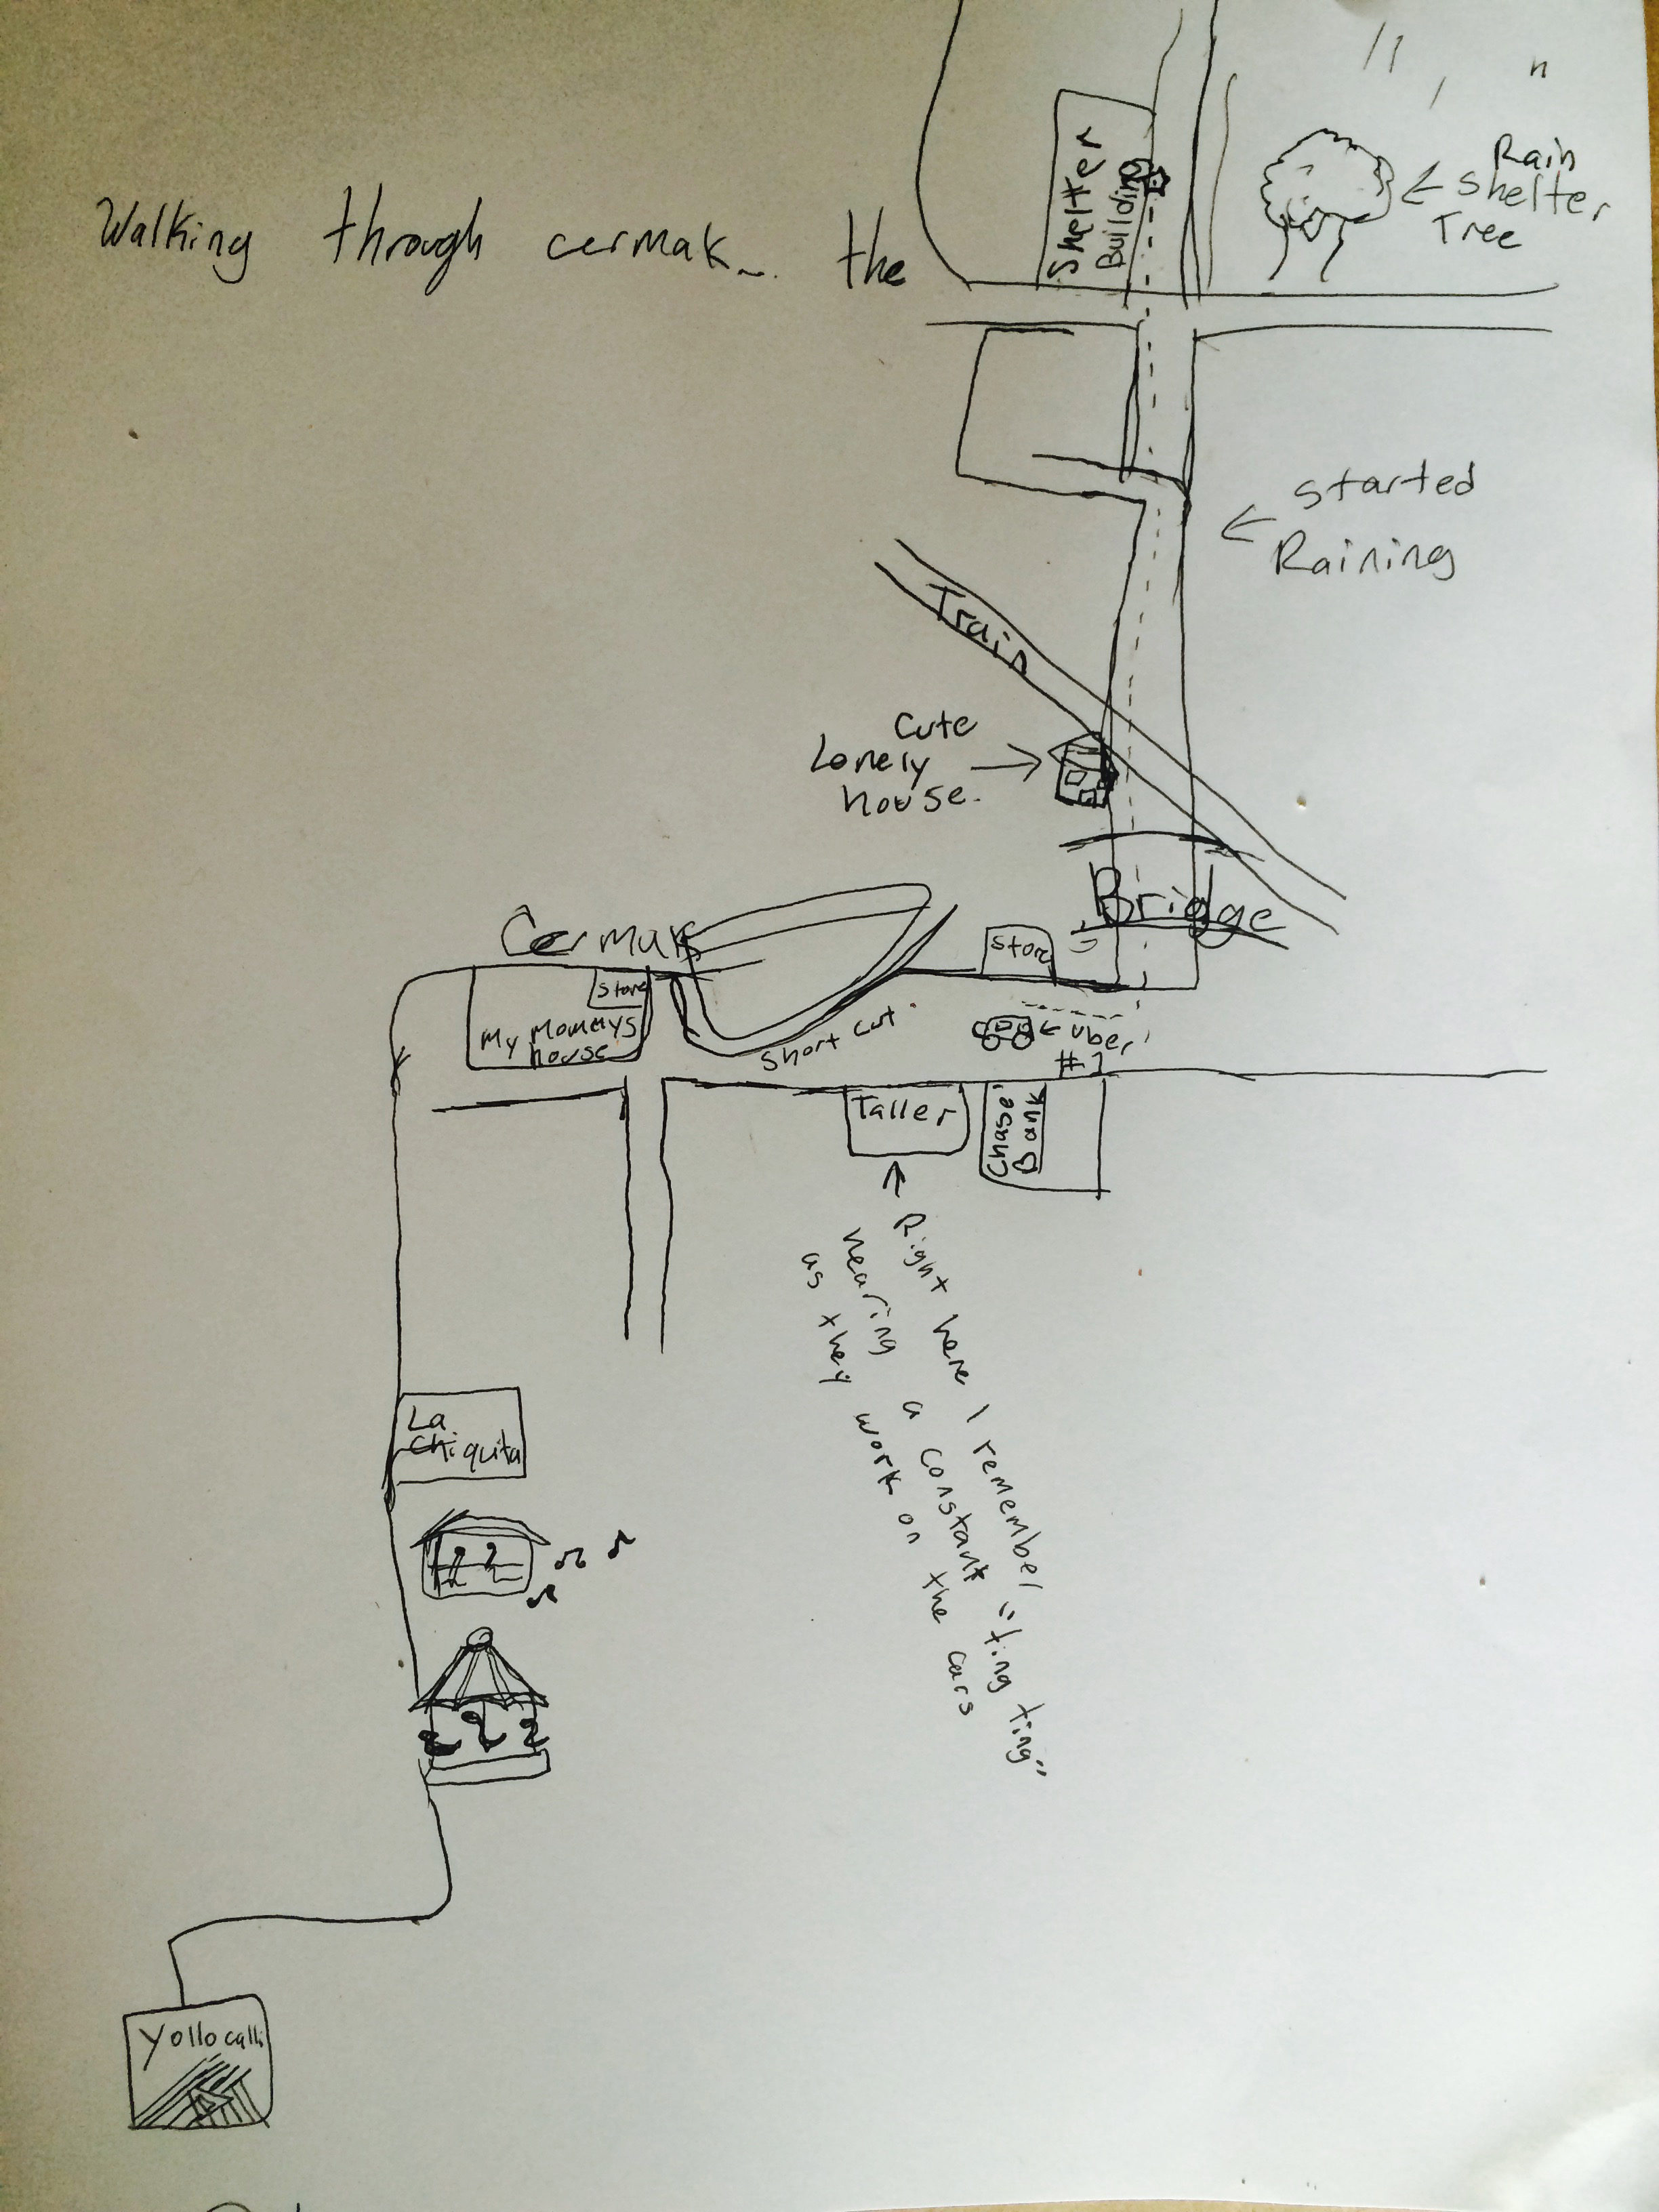 Walking through cermak... the
Shelter
Building
Rain
Shelter
Tree
Started
Raining
Train
Cute
Lonely
house.
Bridge
Cermak
Store
Store
My Mommys
house
Short cut
Uber
#1
Taller
Chase
Bank
Right here I remember "ting ting"
hearing a constant
as they work on the cars
La
Chiquita
Yollocalli